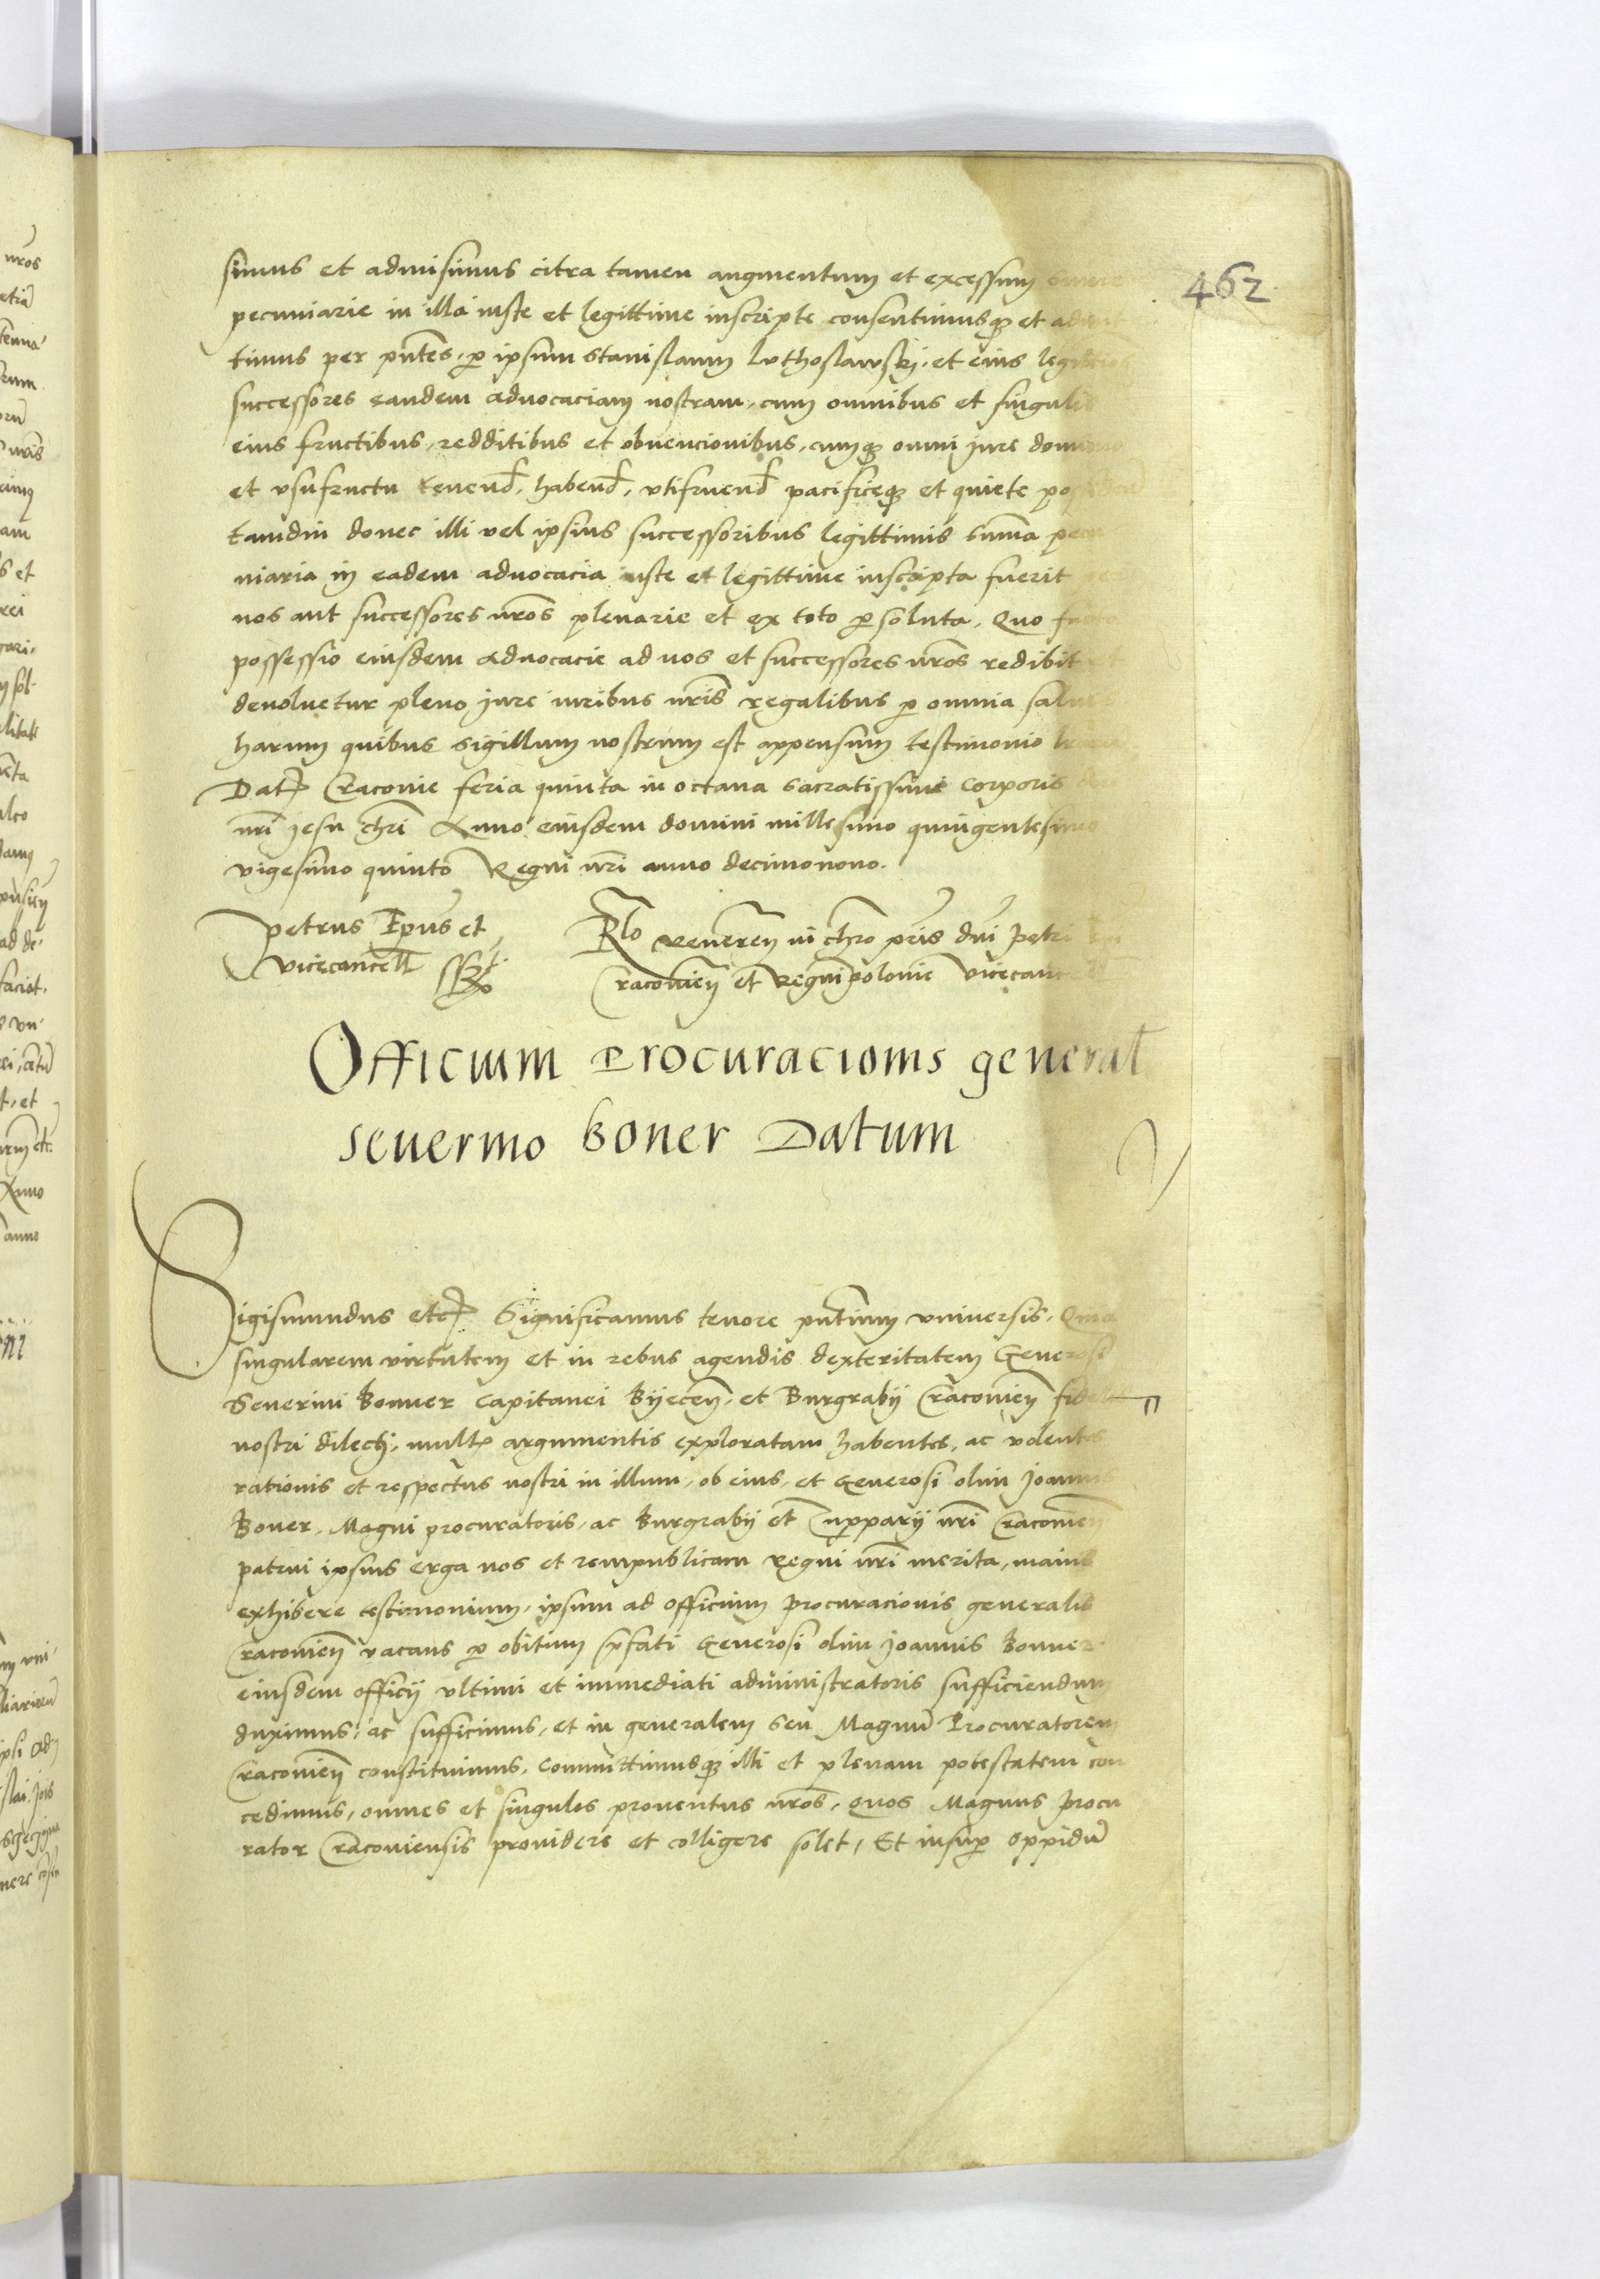 462
simus et admisimus citra tamen augmentum et excessum summe
pecuniarie in illa iuste et legittime inscripte consentimusq et admit
timus per pntes, p ipsum Stanislaum Luthoslawskj, et eius legittimos
successores eandem advocaciam nostram, cum omnibus et singulis
eius fructibus, redditibus et obuencionibus, cumq omni jure dominio
et vsufructu tenend, habend, vtifruend pacificeq et quiete
tamdiu donec illi vel ipsius successoribus legittimis summa pecu
niaria in eadem aduocacia iuste et legittime inscripta fuerit
nos aut successores nros plenarie et ex toto psoluta, Quo facto
possessio eiusdem aduocacie ad nos et successores nros redibit et
deuoluetur pleno jure iuribus nris regalibus p omnia saluis
harum quibus Sigillum nostrum est appensum testimonio
Dat Cracouie feria quinta in octaua Sacratissimi Corporis
nri Jesu chri Anno eiusdem domini millesimo quingentesimo
vigesimo quinto Regni nri anno decimonono.
petrus Epus et
vicecancell sszt
Rlo Reueren in chro pris dni Petri
Cracouien et Regni polonie vicecanc
Officium Procuracionis general
Seuerino Boner Datum
Sigismundus etc Significamus tenore pntium vniuersis, Quia
singularem virtutem et in rebus agendis dexteritatem Generosi
Seuerini Bonner Capitanei Byecen, et Burgrabij Cracouien fidel
nostri dilecti, mult argumentis exploratam habentes, ac volentes
rationis et respectus nostri in illum, ob eius, et Generosi olim Joannis
Boner, Magni procuratoris, ac Burgrabij et Supparij nri Cracouien
patrui ipsius erga nos et rempublicam regni nri merita, maius
exhibere testimonium, ipsum ad officium Procuracionis generalis
Cracouien vacans p obitum pfati Generosi olim Joannis Bonner
eiusdem officij vltimi et immediati administratoris sufficiendum
duximus, ac sufficimus, et in generalem seu Magnu Procuratorem
Cracouien constituimus, Committimusq illi et plenam potestatem con
cedimus, omnes et singulos prouentus nros, quos Magnus Procu
rator Cracouiensis prouidere et colligere solet, Et insup oppidu